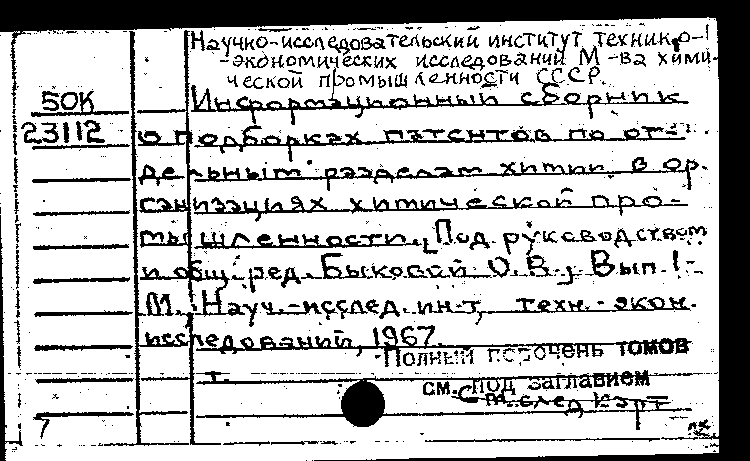 Научно-исследовательский институт технико-
-экономических исследований М-ва хими-
ческой промышленности СССР.
50К Информационный сборник
23112 о подборках патентов по от-
дельным разделам химии в ор-
ганизациях химической про-
мышленности. Под руководством
и общ. ред. Быковой О.В., Вып. 1-
М., Науч.-исслед. ин-т, техн.-экон.
исследований, 1967.
Полный перечень томов
т.
см. под заглавием
См. след карт
7